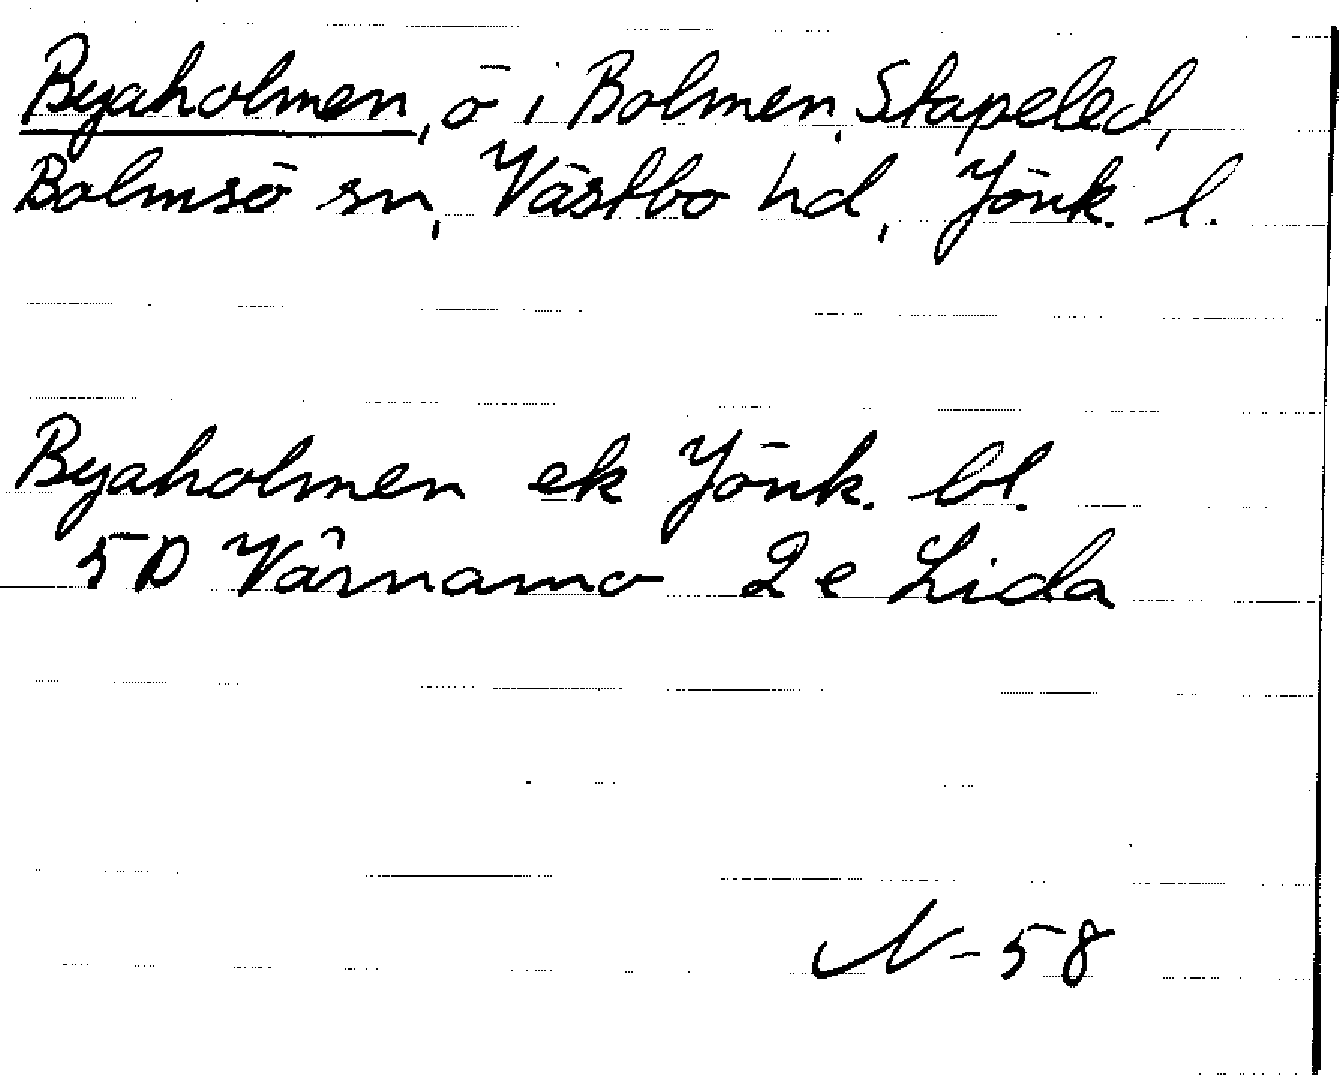 Byaholmen, ö i Bolmen, Stapeled,
Bolmsö sn, Västbo hd, Jönk. l.
Byaholmen ek Jönk. bl.
5D Värnamo 2 e Lida
N-58